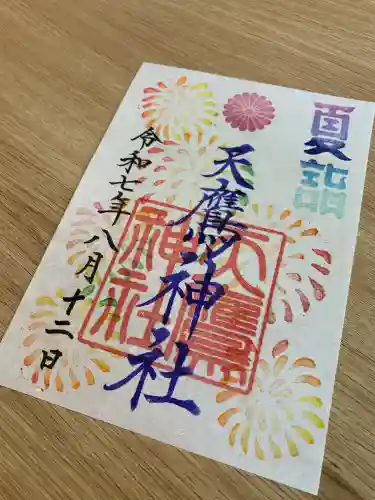 夏詣
天鷹神社
天鷹
神社
令和七年八月十二日